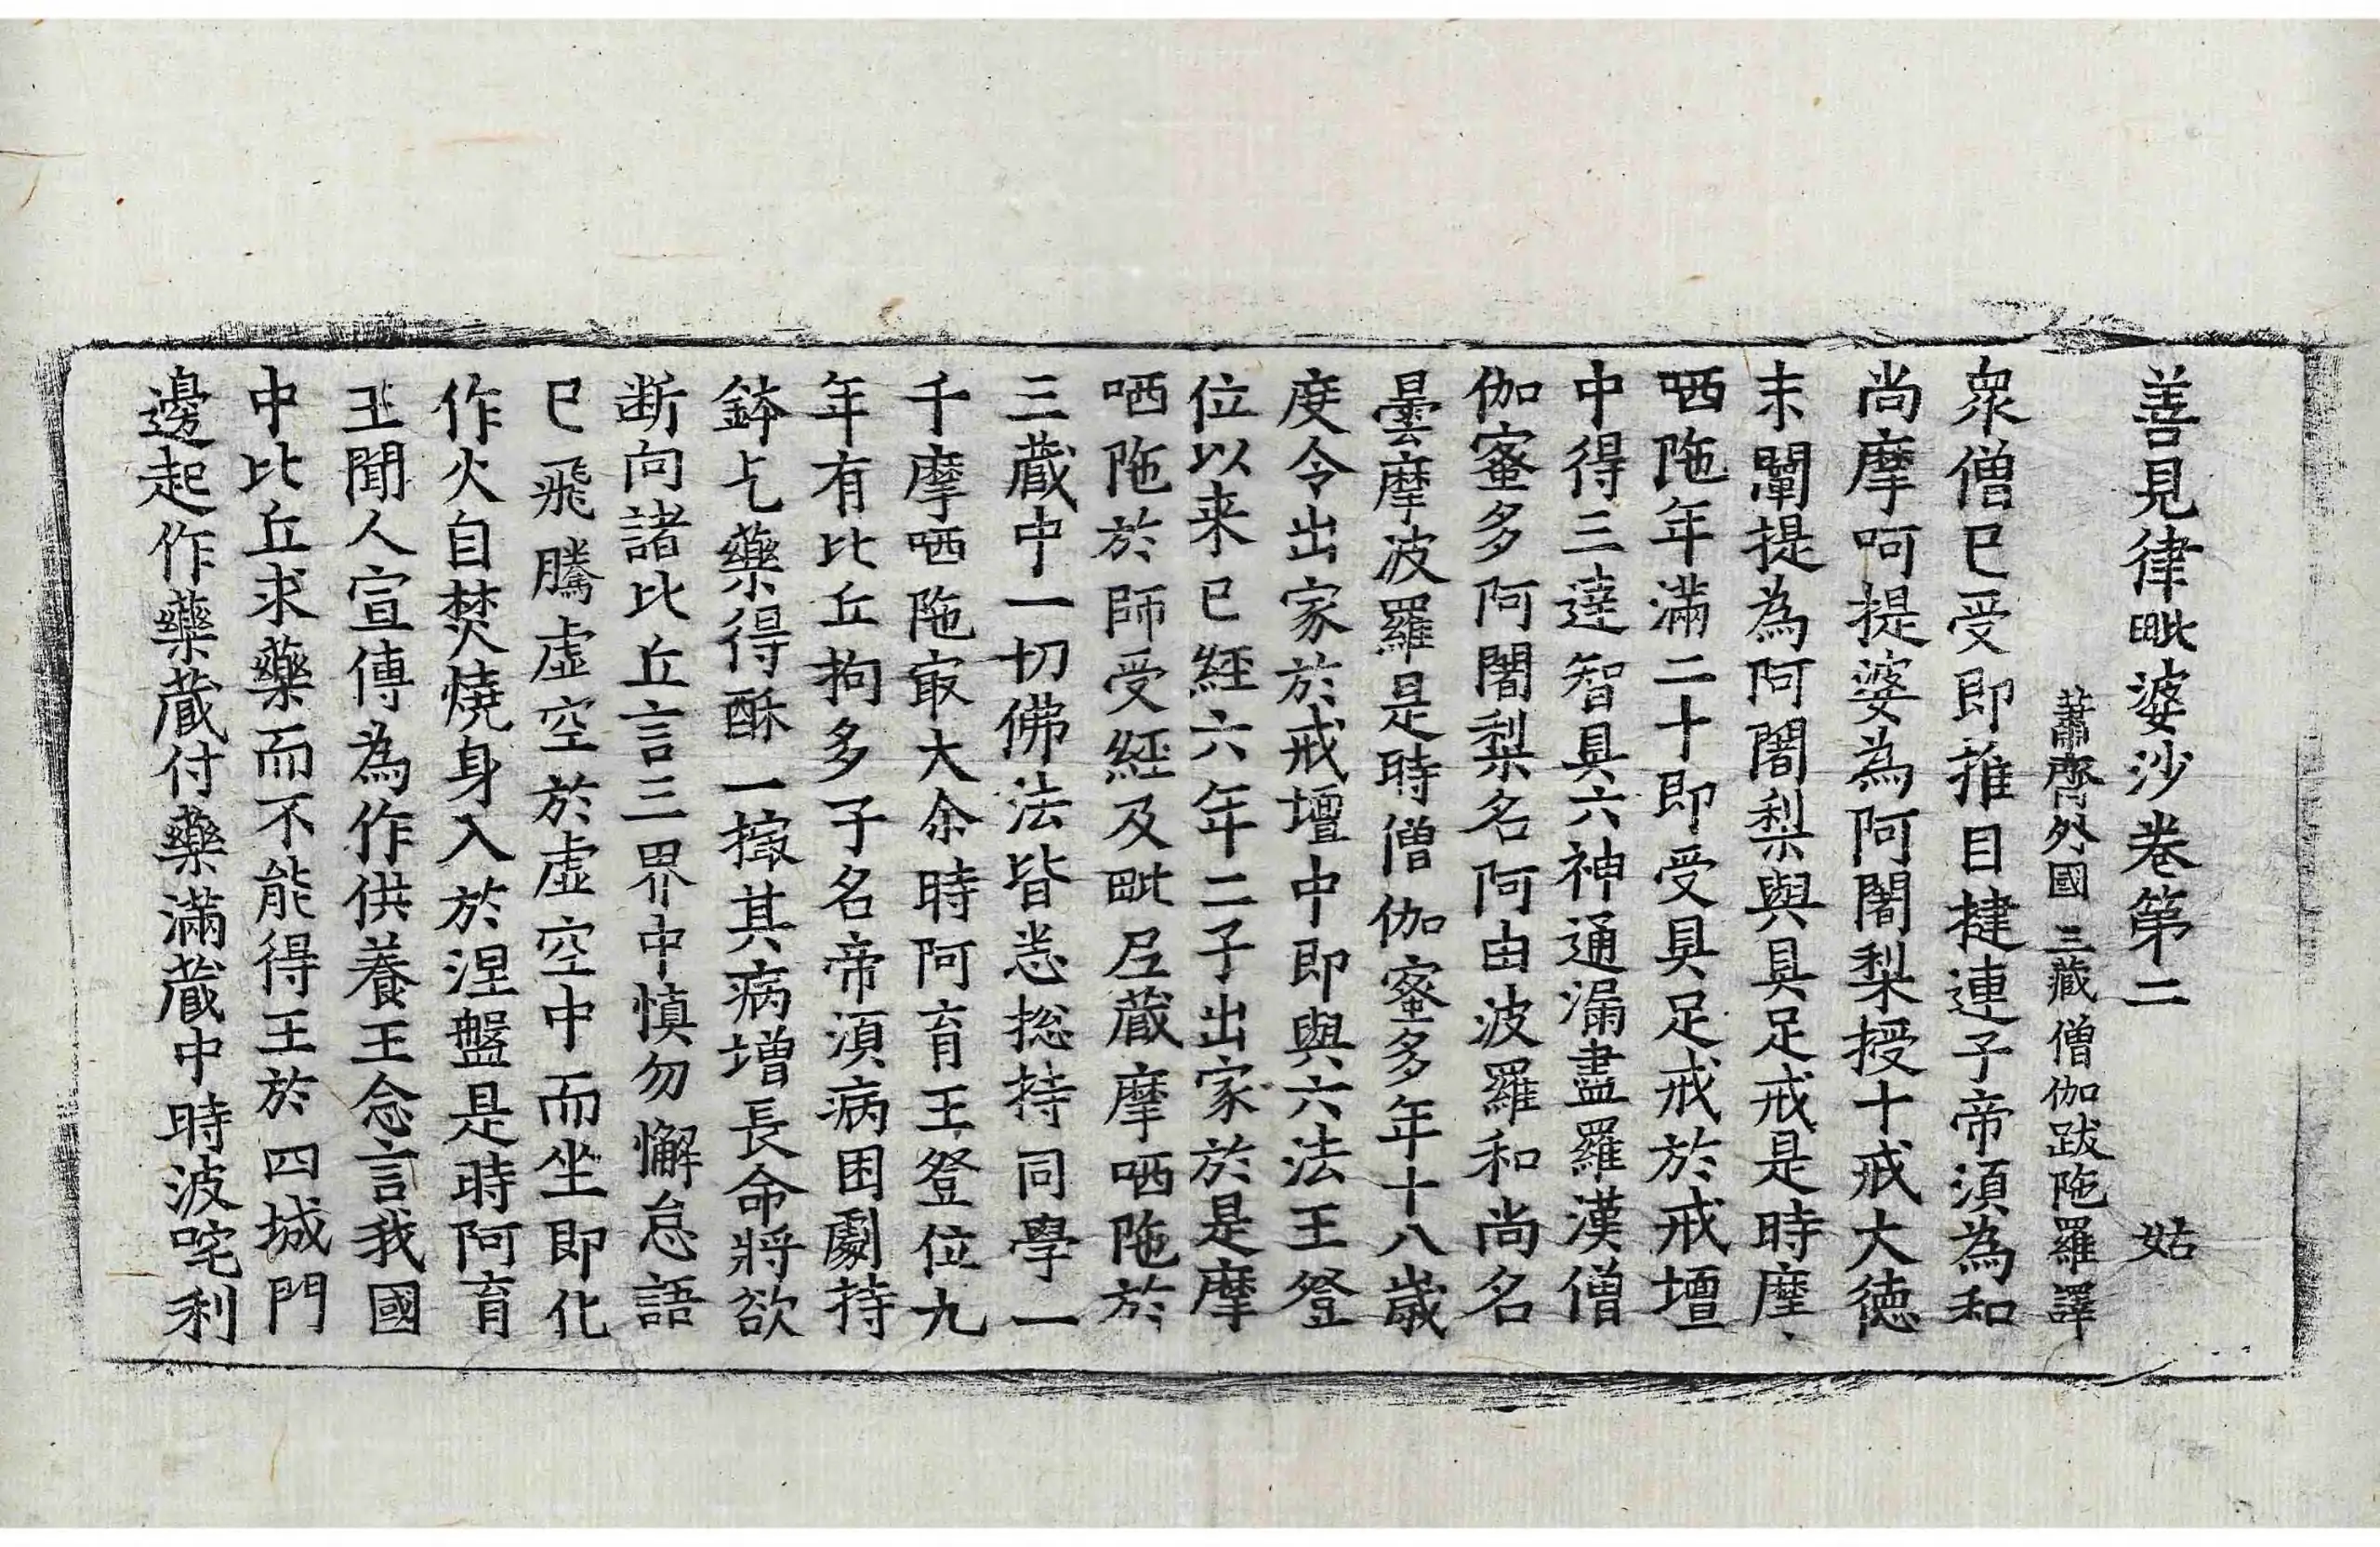 善見律毗婆沙卷第二 姑
蕭齊外國三藏僧伽跋陁羅譯
衆僧已受即推目揵連子帝湏為和
尚摩呵提婆為阿闍梨授十戒大德
末闡提為阿闍梨與具足戒是時摩
哂陁年滿二十即受具足戒於戒壇
中得三達智具六神通漏盡羅漢僧
伽蜜多阿闍梨名阿由波羅和尚名
曇摩波羅是時僧伽蜜多年十八歲
度令出家於戒壇中即與六法王登
位以来已經六年二子出家於是摩
哂陁於師受經及毗尼藏摩哂陁於
三藏中一切佛法皆悉揔持同學一
千摩哂陁冣大尒時阿育王登位九
年有比丘拘多子名帝湏病困劇持
鉢乞藥得酥一撮其病增長命將欲
断向諸比丘言三界中慎勿懈怠語
已飛騰虛空於虛空中而坐即化
作火自焚燒身入於涅盤是時阿育
王聞人宣傳為作供養王念言我國
中比丘求藥而不能得王於四城門
邊起作藥藏付藥滿藏中時波咤利